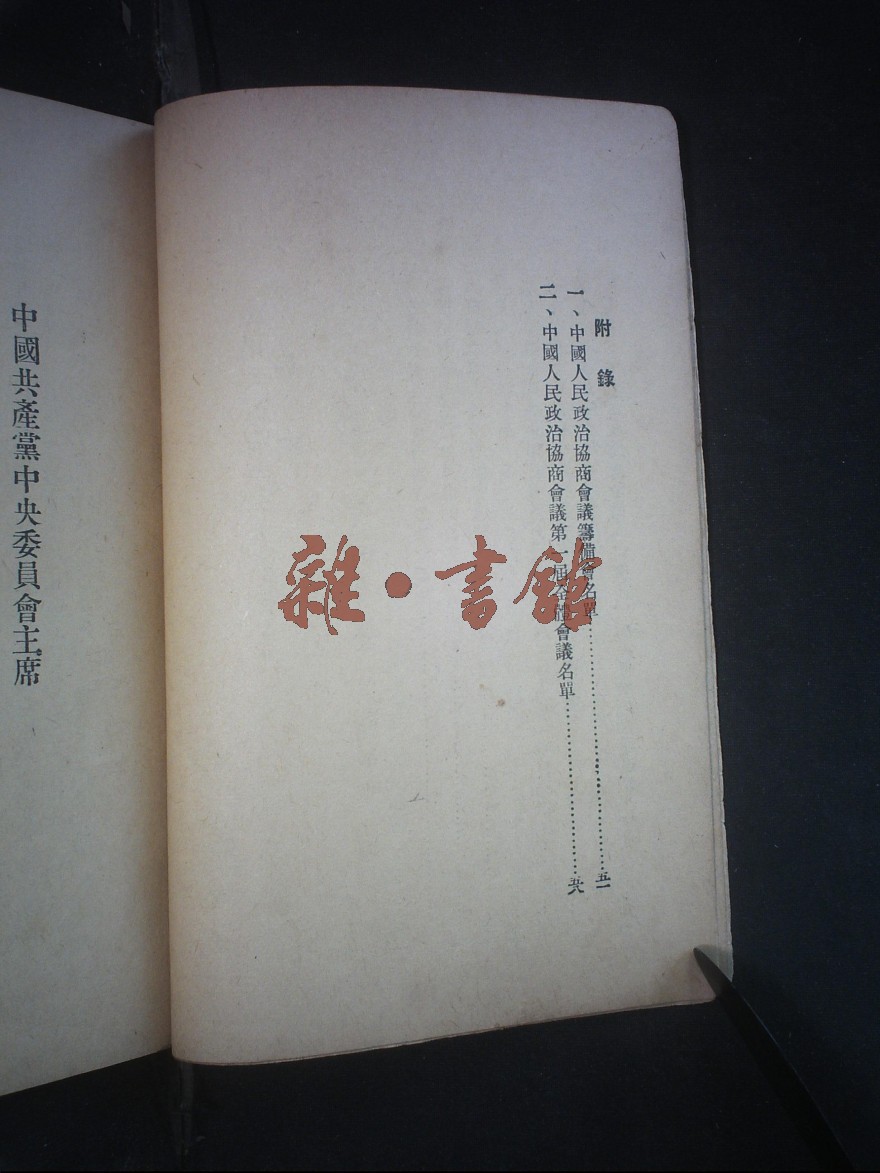 附錄
一、中國人民政治協商會議籌備會名單……五一
二、中國人民政治協商會議第一屆全體會議名單……五六
中國共產黨中央委員會主席
雜·書館